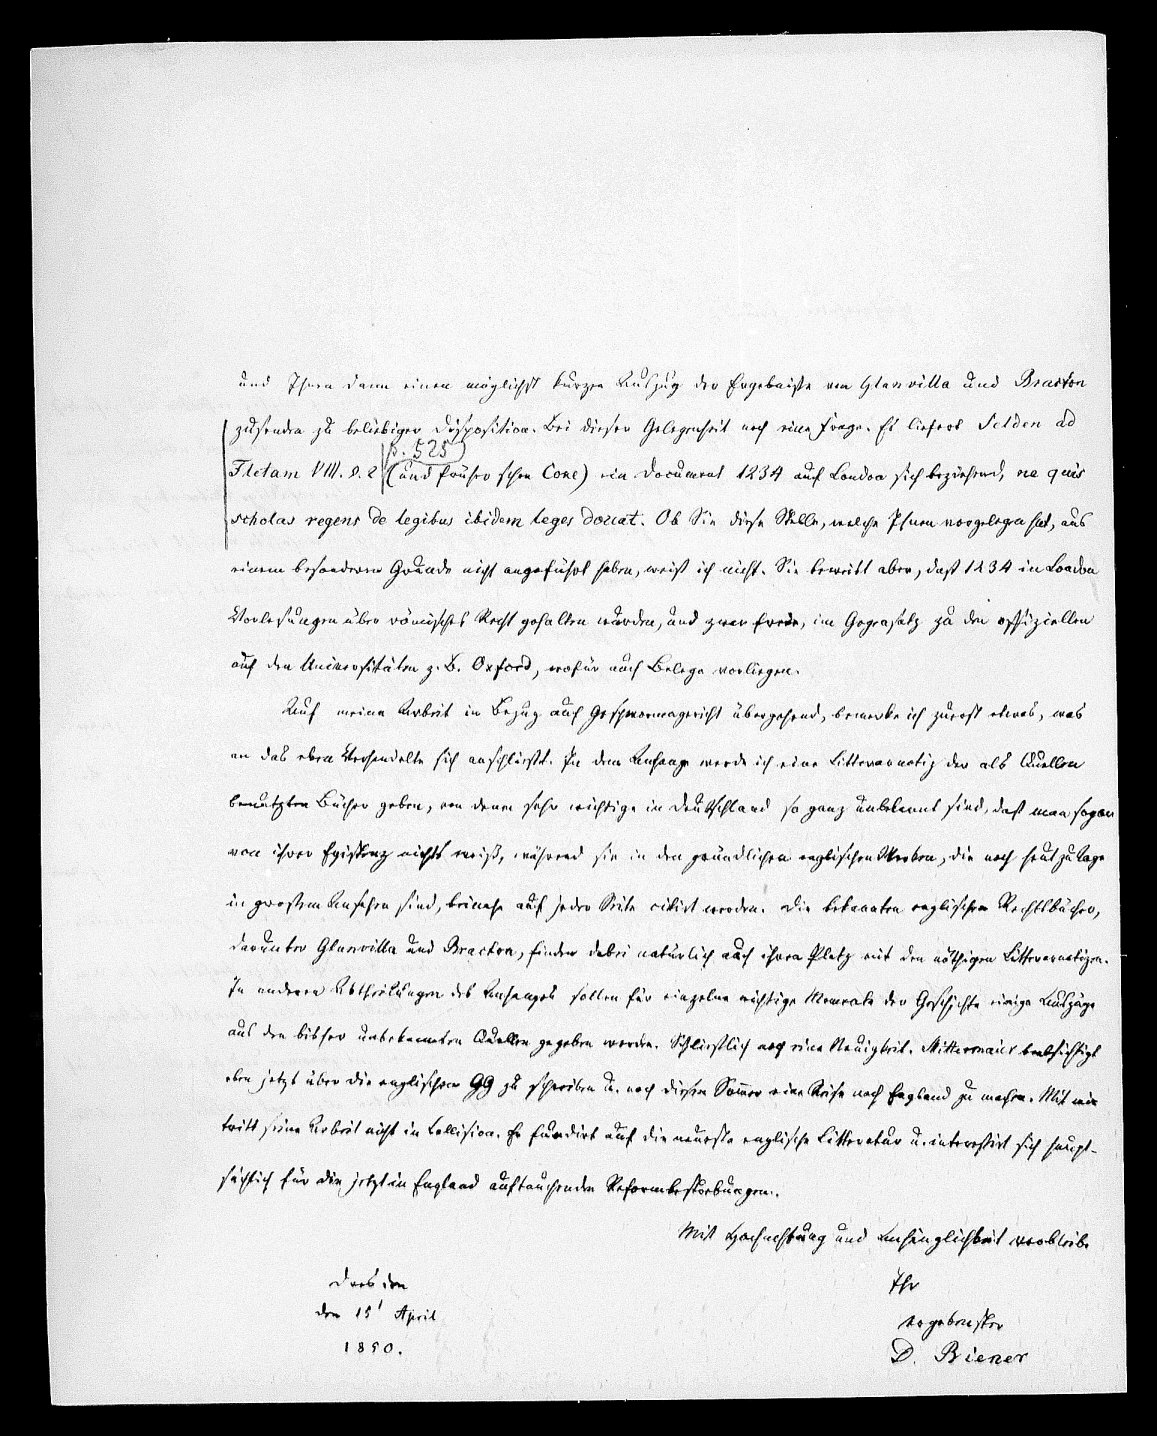 und Ihnen dann einen möglichst kurzen Auszug der Ergebniße von Glanvilla und Bracton
zusenden zu beliebiger Disposition. Bei dieser Gelegenheit noch eine Frage. Es liefert Selden ad
p. 525
Fletam VIII. §. 2 (und früher schon Coke) ein Document 1234 auf London sich beziehend, ne quis
scholas regens de legibus ibidem leges doceat. Ob Sie diese Stelle, welche Ihnen vorgelegen hat, aus
einem besonderen Grunde nicht angeführt haben, weiß ich nicht. Sie beweist aber, daß 1234 in London
Vorlesungen über römisches Recht gehalten wurden, und zwar freie, im Gegensatz zu den offiziellen
auf den Universitäten z. B. Oxford, wofür auch Belege vorliegen.
Auf meine Arbeit in Bezug auf Geschwornengericht übergehend, bemerke ich zuerst etwas, was
an das eben Verhandelte sich anschließt. In dem Anhange werde ich eine Litterarnotiz der als Quellen
benutzten Bücher geben, von denen sehr wichtige in Deutschland so ganz unbekannt sind, daß man sogar
von ihrer Existenz nichts weiß, während sie in den gründlichen englischen Werken, die noch heut zu Tage
in großem Ansehen sind, beinahe auf jeder Seite citirt werden. Die bekannten englischen Rechtsbücher,
darunter Glanvilla und Bracton, finden dabei natürlich auch ihren Platz mit den nöthigen Litterarnotizen.
In anderen Abtheilungen des Anhanges sollen für einzelne wichtige Momente der Geschichte einige Auszüge
aus den bisher unbekannten Quellen gegeben werden. Schließlich noch eine Neuigkeit. Mittermaier beabsichtigt
eben jetzt über die englischen GG zu schreiben u. noch diesen Sommer eine Reise nach England zu machen. Mit mir
tritt seine Arbeit nicht in Collision. Er fundirt auf die neueste englische Litteratur u. interessirt sich haupt-
sächlich für die jetzt in England auftauchenden Reformbestrebungen.
Mit Hochachtung und Anhänglichkeit verbleibe
Dresden
Ihr
den 15 April
ergebenster
1850.
D. Biener